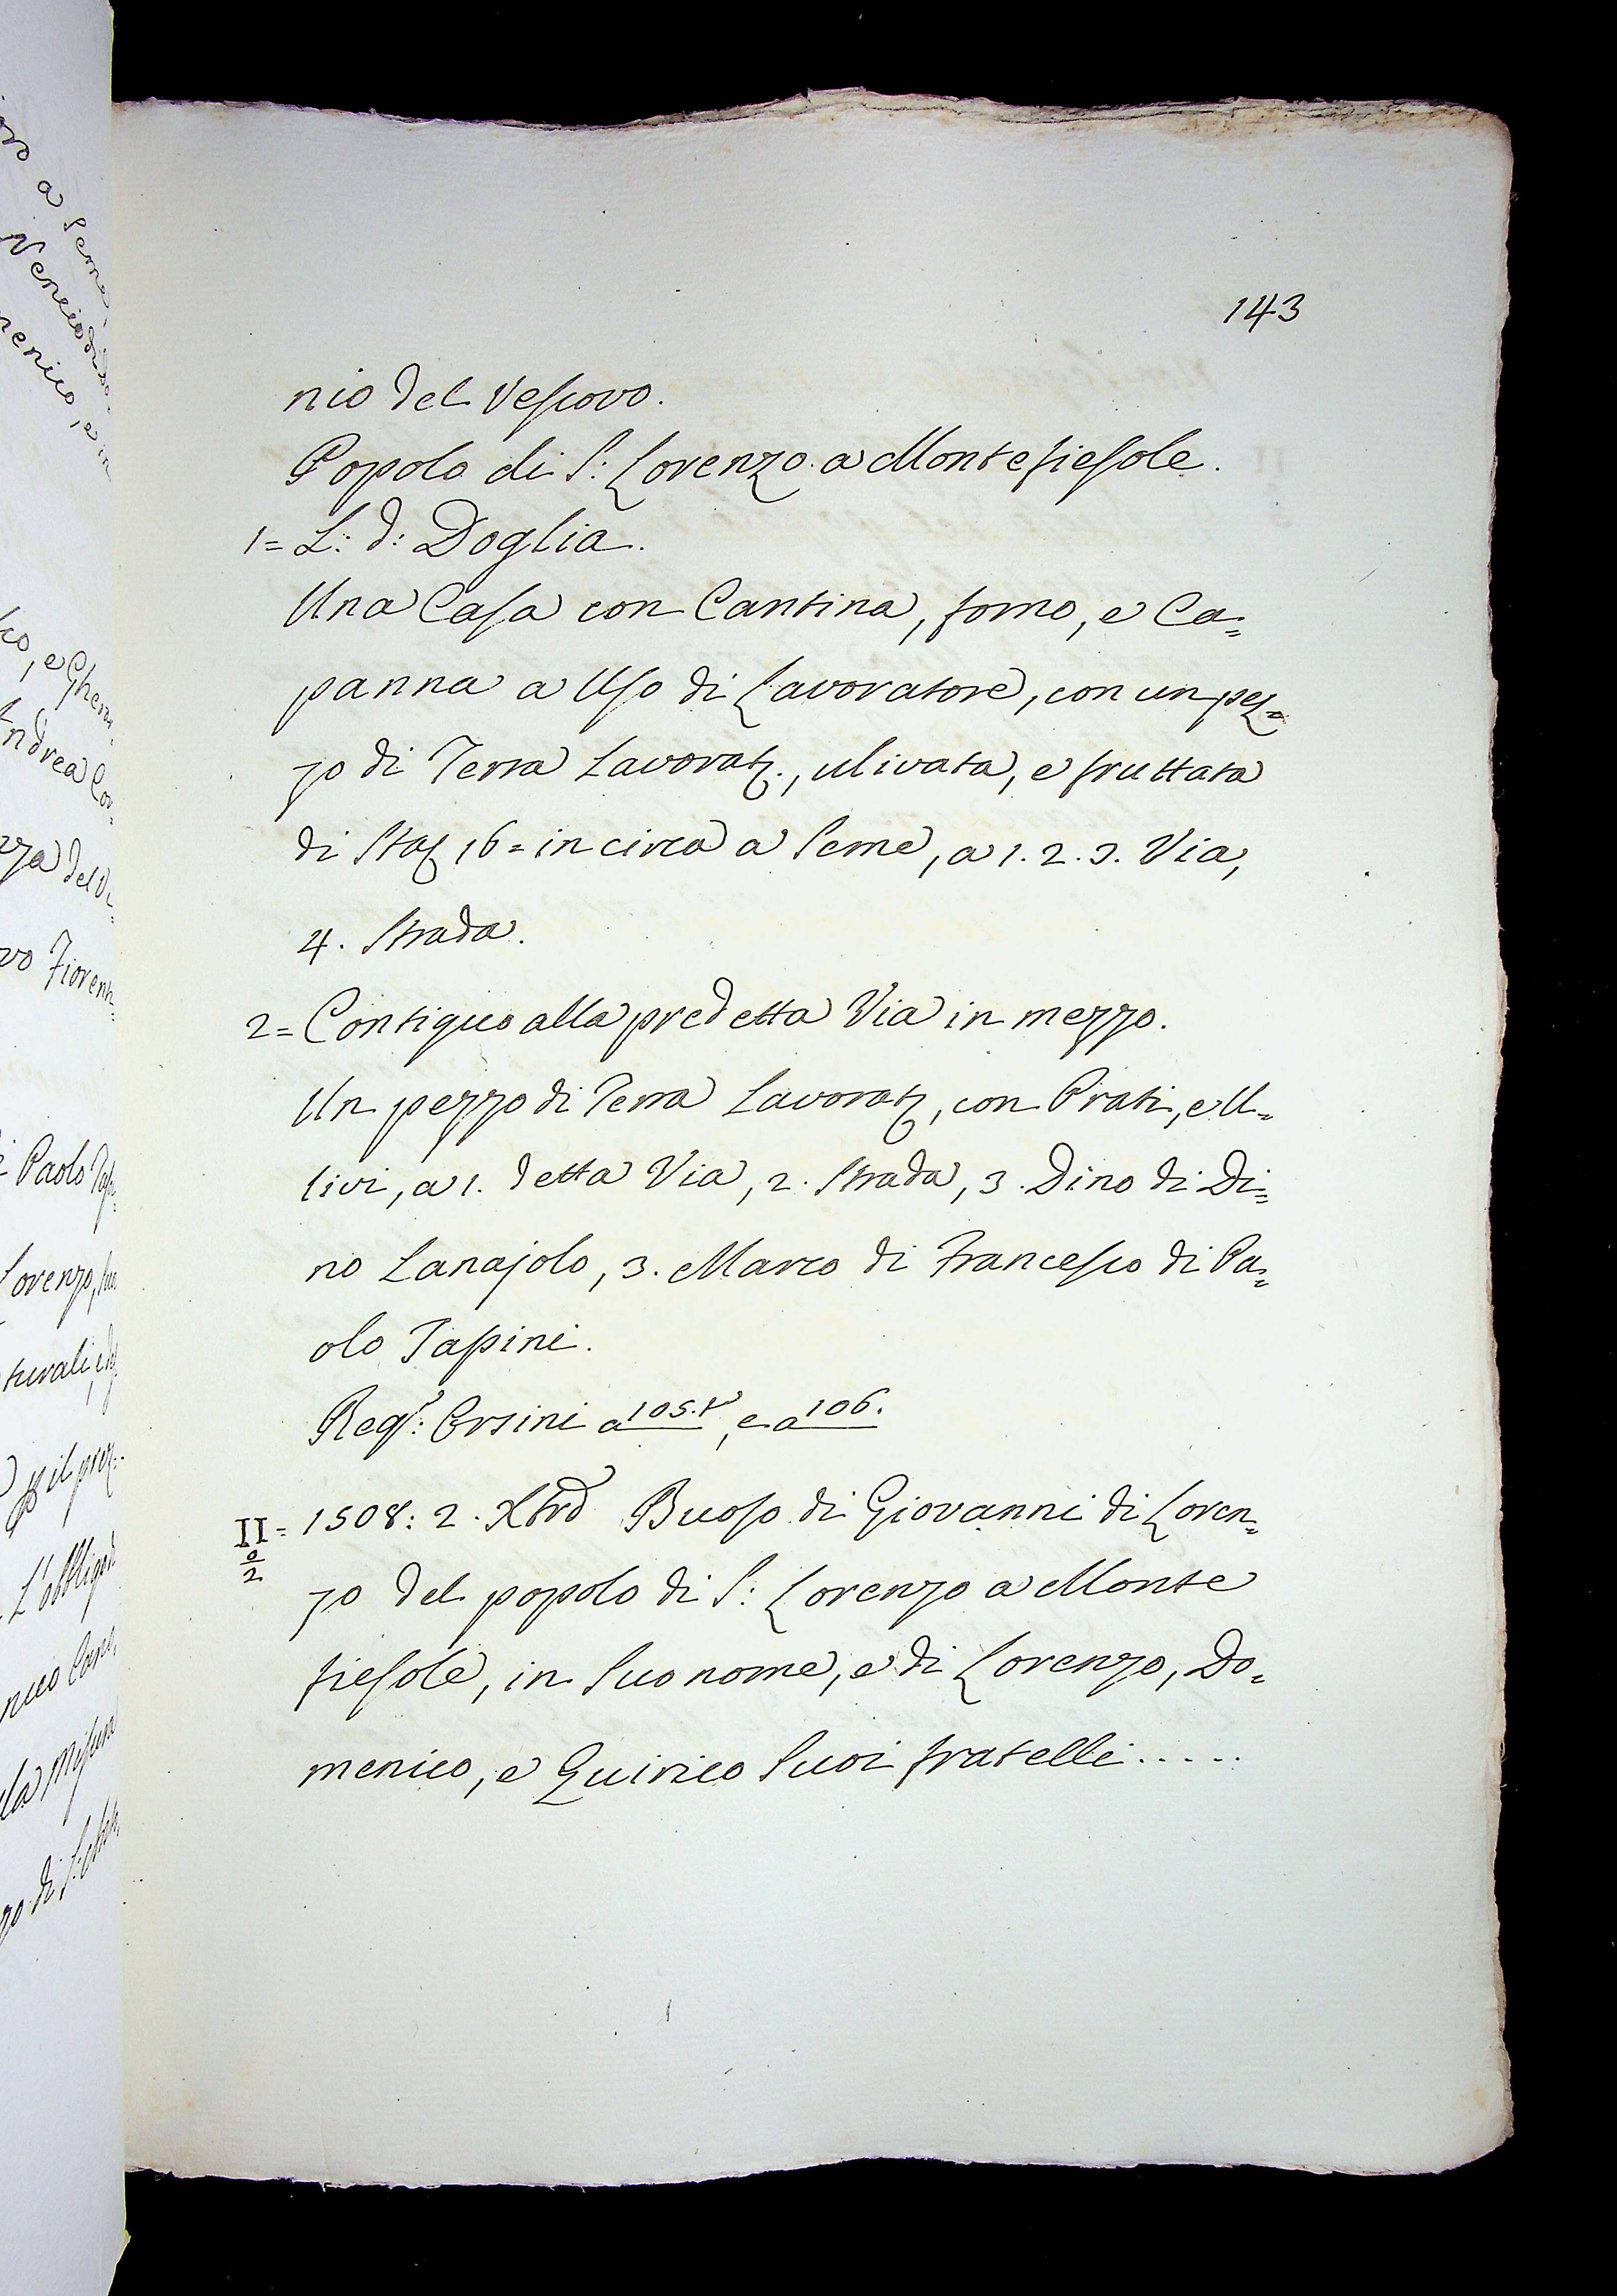 143
nio del Vescovo.
Popolo di S: Lorenzo a Montefiesole.
1= L: d: Doglia.
Una Casa con Cantina, forno, e Ca=
panna a Uso di Lavoratore, con un pez=
zo di Terra Lavorat:, ulivata, e fruttata
di Sta: 16= in circa a Seme, a 1. 2. 3. Via,
4. Strada.
2= Contiguo alla predetta Via in mezzo.
Un pezzo di Terra Lavorat:, con Prati, e U=
livi, a 1. detta Via, 2. Strada, 3. Dino di Di=
no Lanajolo, 3. Marco di Francesco di Pa=
olo Tapini.
Reg: Orsini a 105.t, e a 106.
II= 1508: 2. Xbre Buoso di Giovanni di Loren=
2
zo del popolo di S: Lorenzo a Monte
fiesole, in Suo nome, e di Lorenzo, Do=
menico, e Quirico Suoi fratelli.....
Andrea
Paolo
Lorenzo,